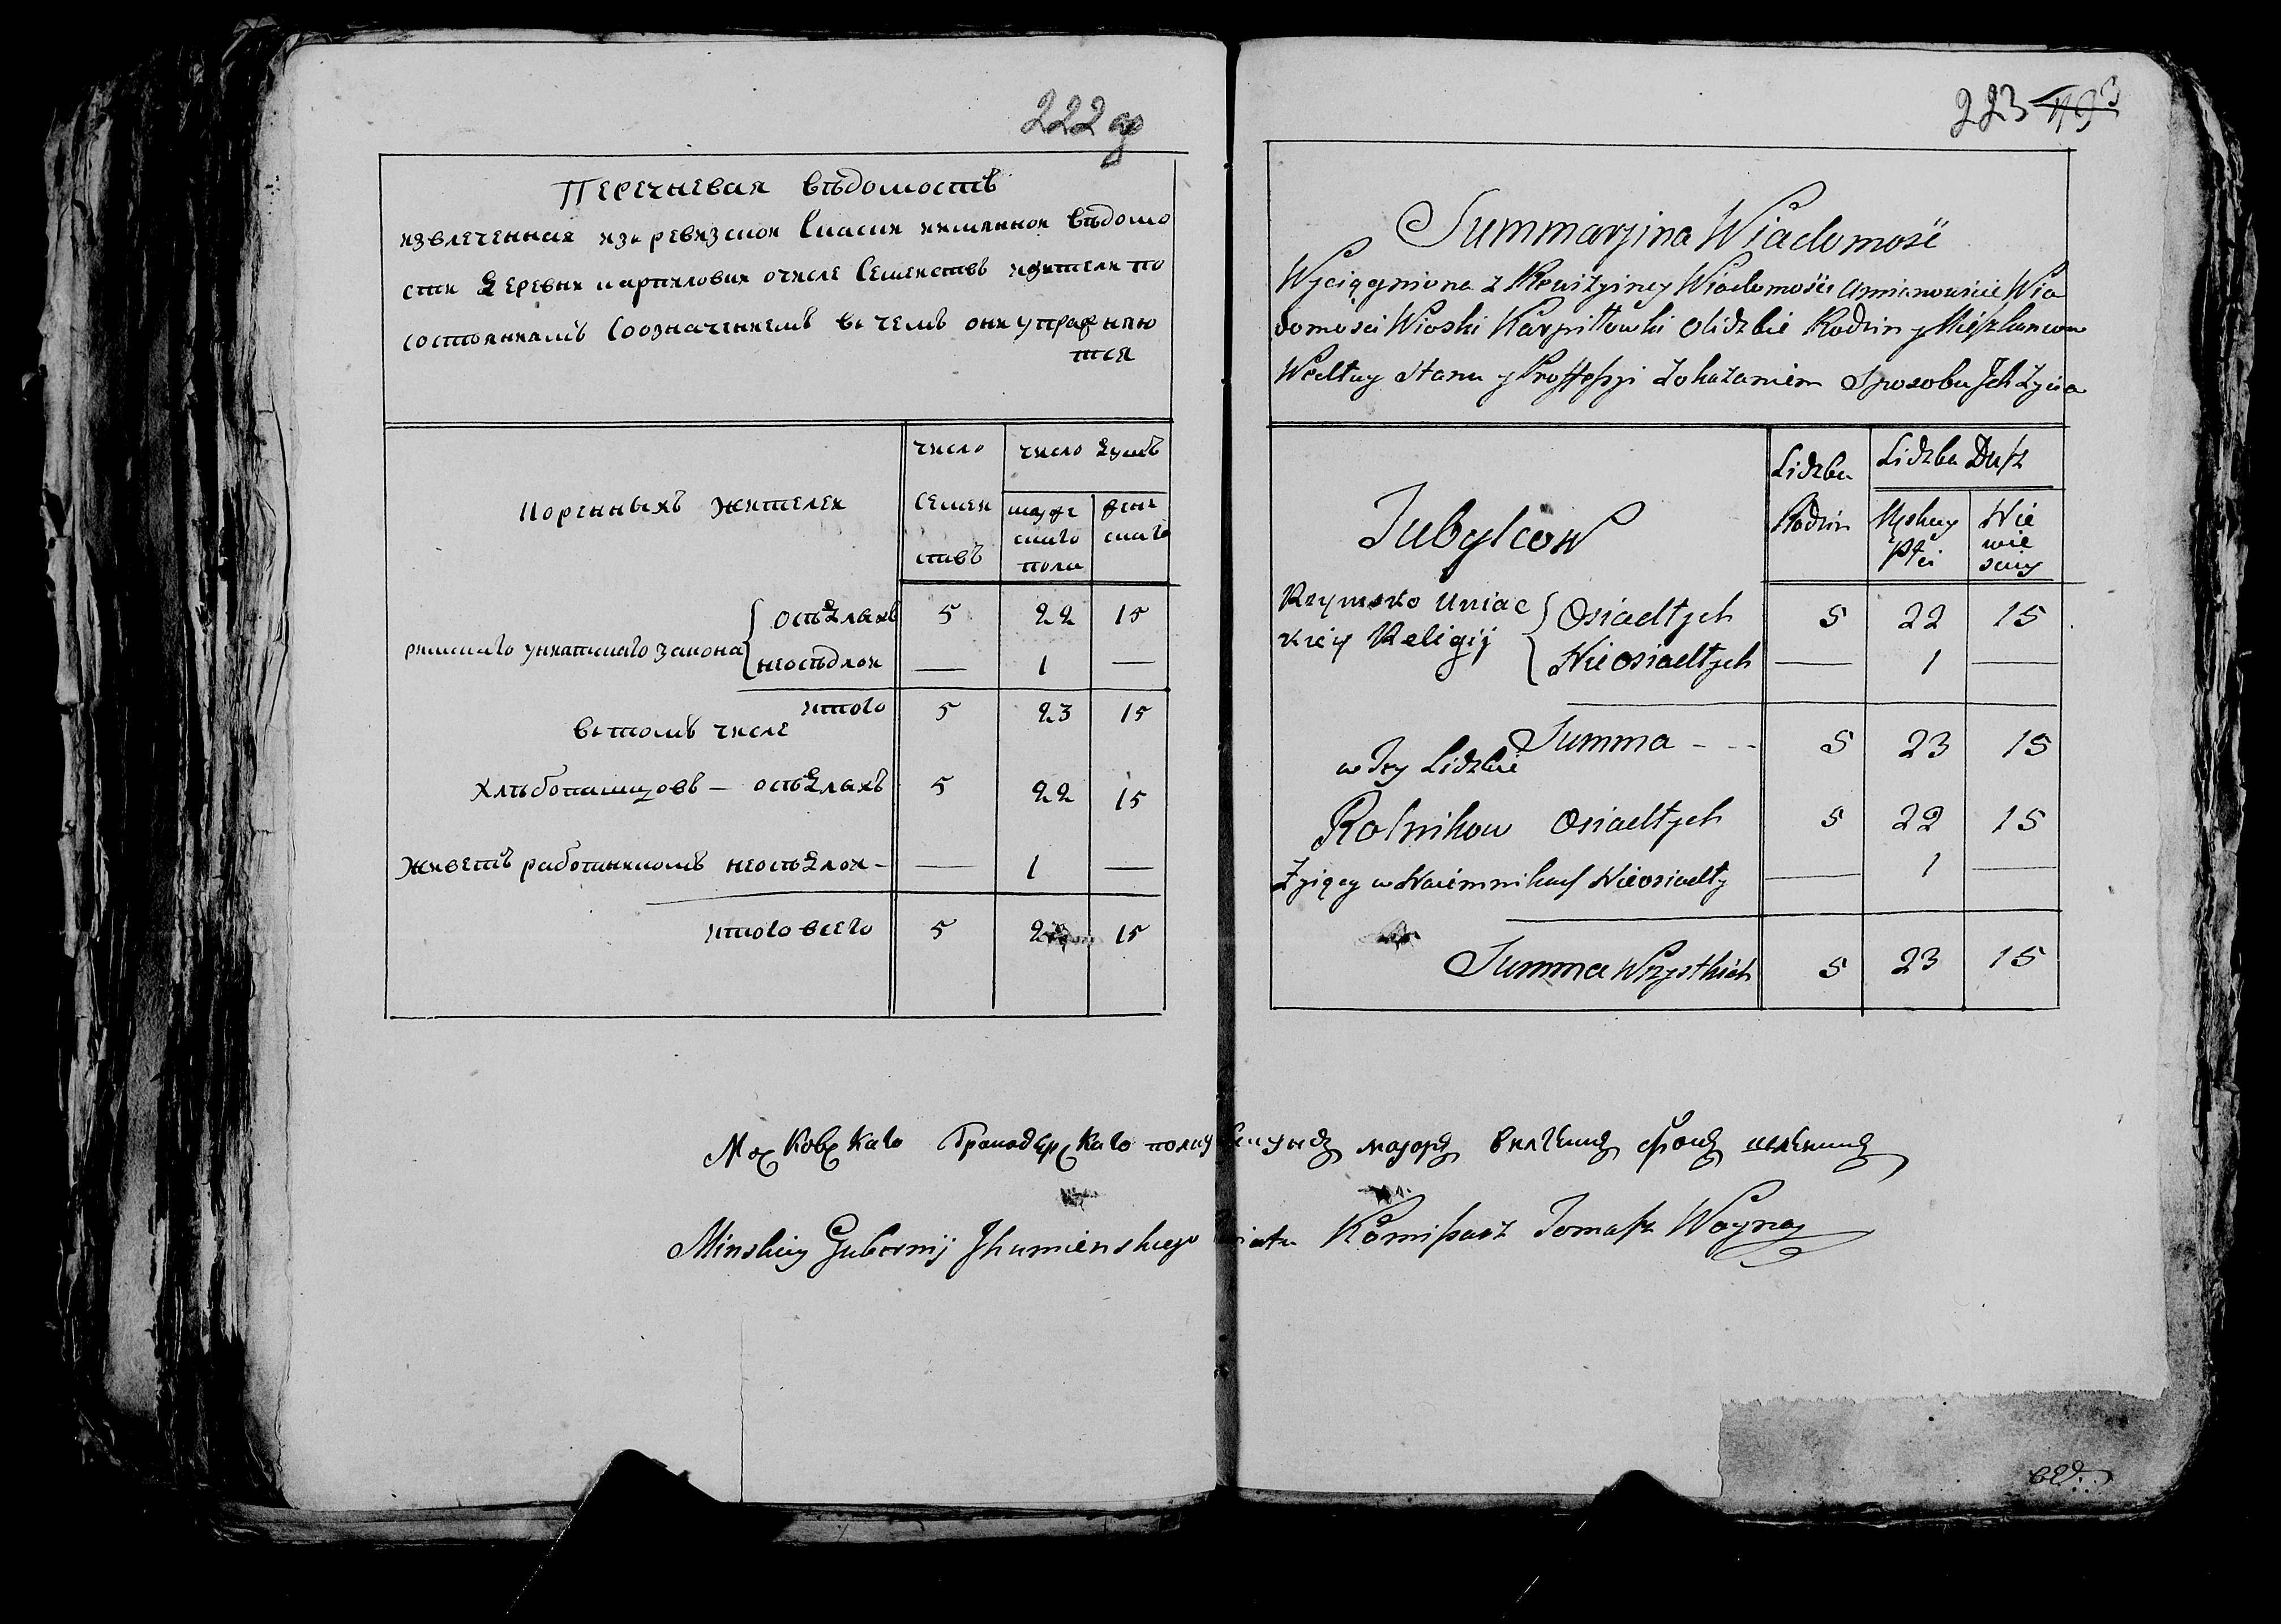 222 об
Перечневая вѣдомость
извлеченная изъ ревизской Сказки имянной вѣдомо
сти Деревни Карпиловки о числе Семействъ и жителей по
состояниямъ Сообозначениемъ въ чемъ они упражняю
тся
Коренныхъ жителей
число Семей ствъ
число Душъ
мужескаго пола
женскаго
римскаго униатскаго закона
осѣдлыхъ 5 22 15
неосѣдлой — 1 —
итого 5 23 15
въ томъ числе
хлѣбопашцовъ — осѣдлыхъ 5 22 15
живетъ работникомъ неосѣдлой — — 1 —
итого всего 5 2 15
223
Summaryina Wiadomość
Wyciągniona z Rewizyiney Wiadomości a mianowicie Wia
domosci Wioski Karpiłowki o lidzbie Rodzin y Mieszkancow
Wedłuy Stanu y Proffessyi z okazaniem Sposobu Ich Życia
Tubylcow
Lidzba Rodzin
Lidzba Dusz
Męskey Płci
Nie wie sciey
Rzymsko Uniac
kiey Religij
Osiadłych 5 22 15
Nieosiadłych — 1 —
Summa - - - 5 23 15
w Tey Lidzbie
Rolnikow Osiadłych 5 22 15
Żyiący w Naiemnikach Nieosiadły — 1 —
Summa Wszystkich 5 23 15
Московскаго Гранодерскаго полку Секундъ маіоръ Вилгелмъ фонъ
Minskiey Gubernij Jhumienskiego Powiatu Komissarz Tomasz Woyna